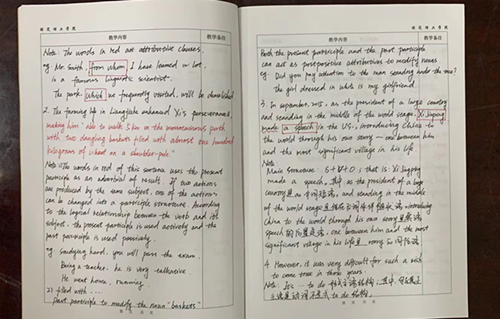 教学内容
教学备注
Note: The words in red are attributive clauses.
eg. Mr. Smith, from whom I have learned a lot,
is a famous linguistic scientist.
The park, which we frequently visited, will be demolished
2. The farming life in Liangjiahe enhanced Xi's perseverance,
making him able to walk 5 km on the mountainous path
with two dangling baskets filled with almost one hundred
kilograms of wheat on a shoulder-pole
Note: The words in red of this sentence uses the present
participle as an adverbial of result. If two actions
are produced by the same subject, one of the actions
can be changed into a participle structure. According
to the logical relationship between the verb and its
subject, the present participle is used actively and the
past participle is used passively.
eg. Studying hard, you will pass the exam.
Being a teacher, he is very talkative
He went home, running.
2) filled with ....
Past participle to modify the noun "baskets"
教学内容
教学备注
Both the present participle and the past participle
can act as postpositive attributives to modify nouns
eg. Did you pay attention to the man standing under the tree?
the girl dressed in white is my girlfriend.
3. In september, 2015, as the president of a large country
and standing in the middle of the world stage, Xi Jinping
made a speech in the U.S., introducing China to
the world through his own story — one between him
and the most significant village in his life
Note
Main structure S+V+O, that is: Xi Jinping
made a speech, 其中, as the president of a large
country and standing in the middle
of the world stage introducing
China to the world through his own story
speech one between him and the most
significant village in his life story
4. However, it was very difficult for such a wish
to come true in those years.
Note: to do
to do